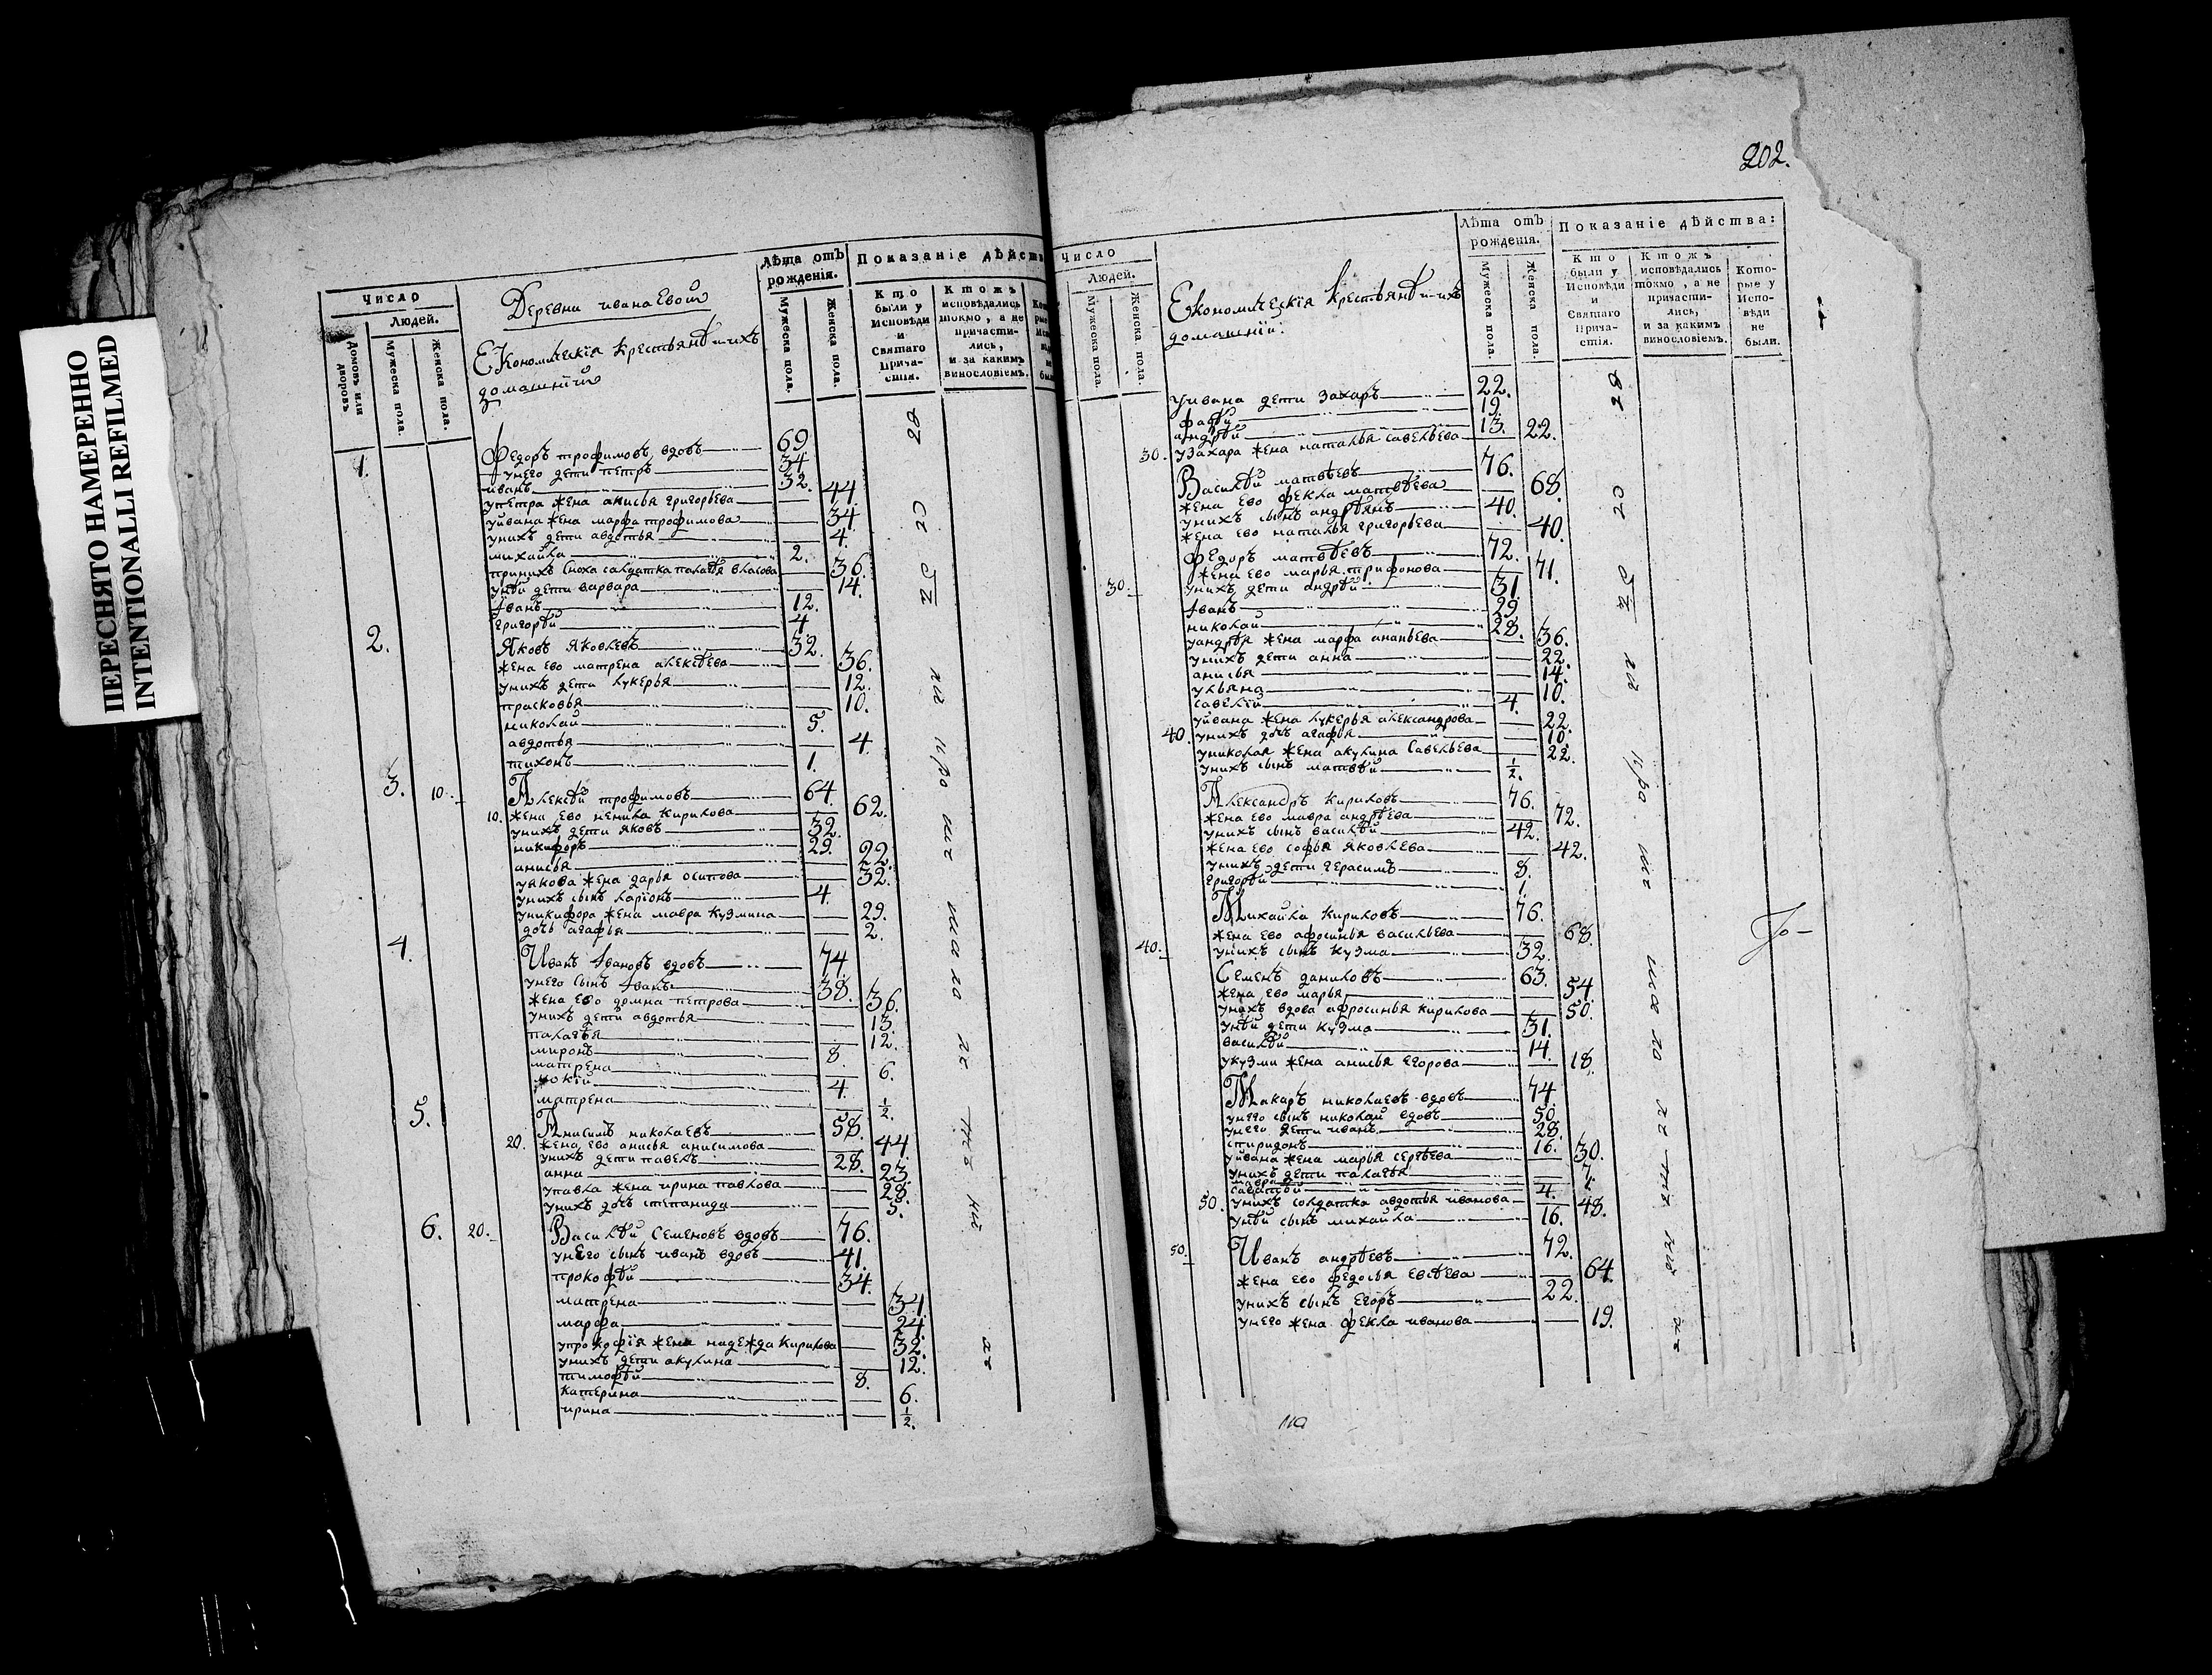 ПЕРЕСНЯТО НАМЕРЕННО
INTENTIONALLI REFILMED
Число
Людей.
Домовъ или дворовъ
Мужеска пола.
Женска пола.
Деревни иванаевой
Економическия крестьянѣ и ихъ
домашнии
Лѣта отъ рожденія.
Мужеска пола.
Женска пола.
Показаніе дѣйств
Кто были у Исповѣди и Святаго Прича-стія.
Ктожъ исповѣдались токмо, а не причасти-лись, и за какимъ винословіемъ.
1. Федоръ трофимовъ вдовъ 69.
у него дети петръ 34
иванъ 32.
у петра жена анисья григорьева 44.
у ивана жена марфа трофимова 34.
у нихъ дети авдотья 4.
михайла 2.
при нихъ сноха салдатка палагѣя власова 36.
у нѣй дети варвара 14.
іванъ 12.
григорѣй 4.
2. Яковъ Яковлевъ 32.
жена ево матрена алексѣева 36.
у нихъ дети лукерья 12.
прасковья 10.
николай 5.
авдотья 4.
тихонъ 1.
3. 10. Алексѣй трофимовъ 64.
10. жена ево ненила кирилова 62.
у нихъ дети яковъ 32.
никифоръ 29.
анисья 22.
у якова жена дарья осипова 32.
у нихъ сынъ ларіонъ 4.
у никифора жена мавра кузмина 29.
дочь агафья 2.
4. Иванъ івановъ вдовъ 74.
у него сынъ іванъ 38.
жена ево домна петрова 36.
у нихъ дети авдотья 13.
палагѣя 12.
миронъ 8.
матрена 6.
мокій 4.
матрена 1/2.
5. Анисимъ николаевъ 58.
20. жена ево анисья анисимова 44.
у нихъ дети павелъ 28.
анна 23.
у павла жена ирина павлова 28.
у нихъ дочь степанида 5.
6. 20. Василѣй Семеновъ вдовъ 76.
у него сынъ иванъ вдовъ 41.
прокофѣй 34.
матрена 34.
марфа 24.
у прокофія жена надежда кирилова 32.
у нихъ дети акулина 12.
тимофѣй 8.
катерина 6.
ирина 1/2.
202.
Число
Людей.
Мужеска пола.
Женска пола.
Економическія крестьянѣ и ихъ
домашніи:
Лѣта отъ рожденія.
Мужеска пола.
Женска пола.
Показаніе дѣйства:
Кто были у Исповѣди и Святаго Прича-стія.
Ктожъ исповѣдались токмо, а не причасти-лись, и за какимъ винословіемъ.
Кото-рые у Испо-вѣди не были.
у ивана дети захаръ 22.
фадѣй 19.
андрѣй 13.
30. у захара жена наталья савельева 22.
Василѣй матвѣевъ 76.
жена ево фекла матвѣева 68.
у нихъ сынъ андрѣянъ 40.
жена ево наталья григорьева 40.
федоръ матвѣевъ 72.
жена ево марья трифонова 71.
30. у нихъ дети андрѣй 31.
іванъ 29.
николай 28.
у андрѣя жена марфа ананьева 36.
у нихъ дети анна 22.
анисья 14.
ульяна 10.
савелій 4.
у ивана жена лукерья александрова 22.
40. у нихъ дочь агафья 10.
у николая жена акулина савельева 22.
у нихъ сынъ матвѣй 1/2.
Александръ Кириловъ 76.
жена ево мавра андрѣева 72.
у нихъ сынъ василѣй 42.
жена ево софья яковлева 42.
у нихъ дети герасимъ 8.
григорѣй 1.
Михайла кириловъ 76.
жена ево афросинья васильева 68.
40. у нихъ сынъ кузма 32.
Семенъ даниловъ 63.
жена ево марья 54.
у нихъ вдова афросинья кирилова 50.
у нѣй дети кузма 31.
василѣй 14.
у кузми жена анисья егорова 18.
Макаръ николаевъ вдовъ 74.
у него сынъ николай вдовъ 50.
у него дети иванъ 28.
спиридонъ 16.
у ивана жена марья сергѣева 30.
у нихъ дети палагѣя 7.
мавра
савастѣй 4.
50. у нихъ солдатка авдотья иванова 48.
у нѣй сынъ михайла 16.
50. Иванъ андрѣевъ 72.
жена ево федосья евсѣева 64.
у нихъ сынъ Егоръ 22.
у него жена фекла иванова 19.